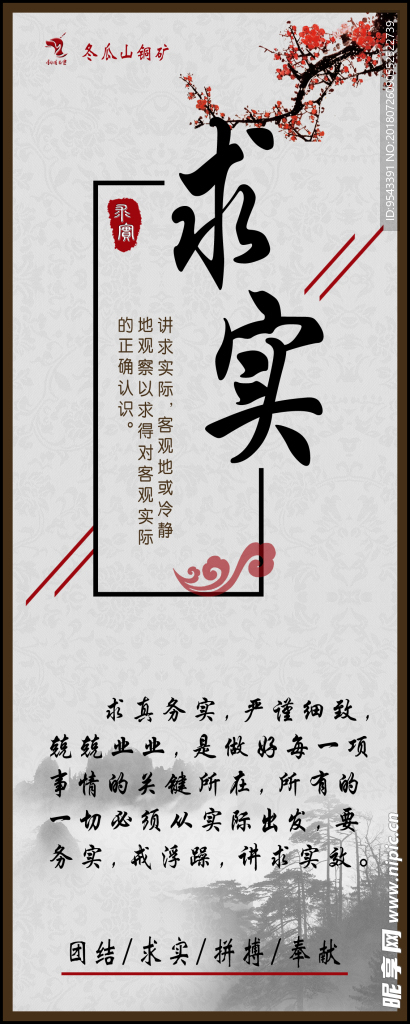 冬瓜山铜矿
求实
求實
讲求实际，客观地或冷静
地观察以求得对客观实际
的正确认识。
求真务实，严谨细致，
兢兢业业，是做好每一项
事情的关键所在，所有的
一切必须从实际出发，要
务实，戒浮躁，讲求实效。
团结/求实/拼搏/奉献
昵享网 www.nipic.cn